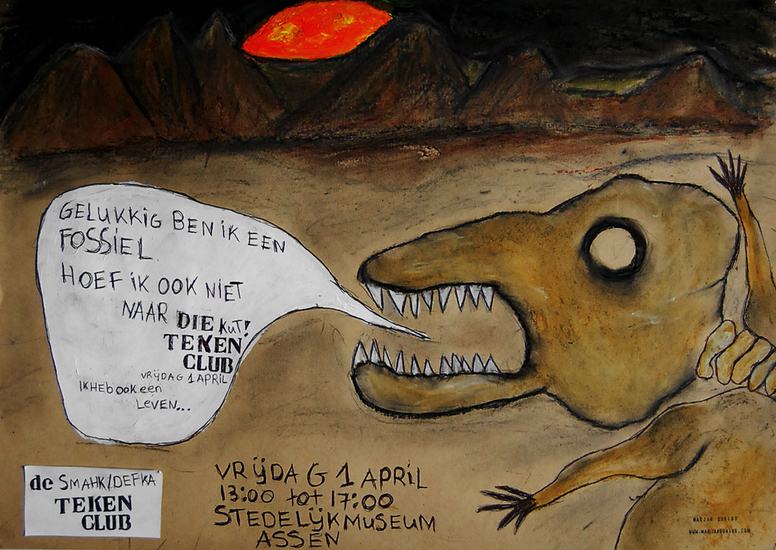 GELUKKIG BEN IK EEN
FOSSIEL
HOEF IK OOK NIET
NAAR DIE KUT!
TEKEN
CLUB
VRIJDAG 1 APRIL
IK HEB OOK EEN
LEVEN...
de SMAHK/DEFKA
TEKEN
CLUB
VRIJDAG 1 APRIL
13:00 tot 17:00
STEDELIJK MUSEUM
ASSEN